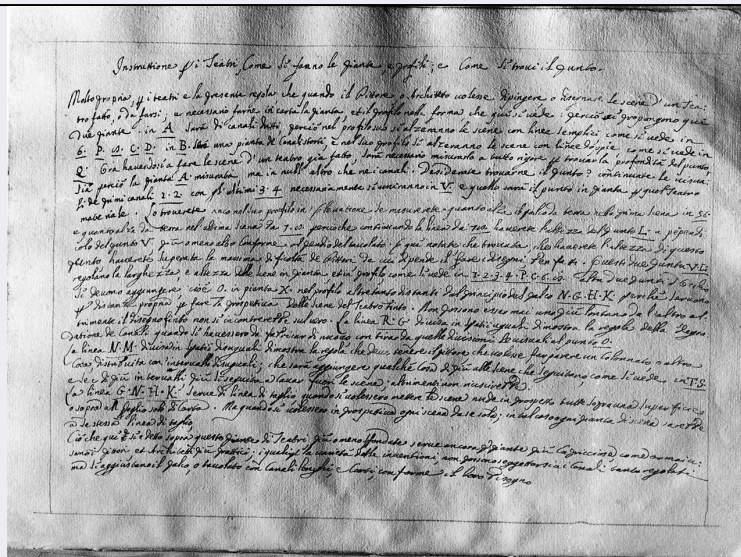 Instruttione p i Teatri, Come si fanno le piante, e profili; e Come si trovi il punto.
Molto propria p i teatri e la presente regola che quando il Pittore o Architetto volesse dipingere o disernare le scene d'un Tea:
tro fatto, o da farsi, e necessario farne in carta la pianta et il profilo nella forma che qui si vede; perciò si propongono qui
due piante; in A. sarà di canali dritti, perciò nel profilo suo si alzeranno le scene con linee semplici come si vede in
6. P. S. C. D. in B. sarà una pianta de Canali storti e nel suo profilo si alzeranno le scene con linee doppie come si vede in
Q. Ora havendosi a fare le scene d'un teatro già fatto, sarà necessario misurarlo a tutto rigore p trovar la profondità del punto,
sia perciò la pianta A. misurata ma in null'altro che ne i canali. Desiderate trovarne il punto? continuate le misu:
re de primi canali 1. 2. con gl'ultimi 3. 4. necessariamente si uniranno in V. e quello sarà il punto in pianta p quel Teatro
materiale. Lo trovarete anco nel suo profilo in se misurarete quanto alta da terra nella prima scena in 5.6.
e quanto alta da terra nell'ultima scena in 7. perciocche continuando la linea da haverete l'altezza del punto L. a perpendi:
colo del punto V. più o meno alto conforme al pendio del tavolato. e qui notate che trovata che haverete l'altezza di questo
punto haverete superata la massima difficoltà de Pittori, da cui dipende il fare i disegni Perfetti. Questi due punti V. L.
regolano la larghezza, e altezza delle scene in pianta et in profilo come si vede in 1. 2. 3. 4. P. C. 6.
si devono aggiungere cioè O. in pianta X. nel profilo altretanto distanti dal principio del palco N. G. H. K. perche saranno
p distanze proprie p fare la prospettiva delle scene del Teatro finto. Non possono esser mai uno più lontano da l'altro al:
trimente il disegno finto non si incontrerebbe sul vero. La linea R. G. divisa in spatii uguali dimostra la regola della
datione de Canali quando si havessero da fabricar di nuovo con tirar da quelle divisioni le visuali al punto O.
La linea N. M. divisa in spatii disuguali dimostra la regola che deve tenere il pittore che volesse far parere un Colonnato, o altra
Cosa, distribuita con intervalli disuguali; che sarà aggiungere qualche Cosa di più alle scene che seguitano, come si vede in T. S.
e se è di più intervalli più si seguita a lavar fuori le scene; altrimenti non riuscirebbe.
La linea G. N. H. K. serve di linea di taglio quando si volessero mettere le scene nude in prospetto tutte sopra una superficie
o sopra all foglio solo di Carta. Ma quando si volessero in prospettiva ogni scena da se sola; in tal caso ogni pianta di scena sarebbe
la stessa linea di taglio.
Ciò che qui si è detto sopra questo genere di Teatri più o meno sfondato serve ancora p piante più Capricciose come
pittori et Architetti più prattici, i quali p la varietà delle inventioni non possono soggettarsi a i Canali tanto regolati:
ma si aggiustano il palco, o tavolato con Canali longhi, e Corti, conforme il loro Disegno